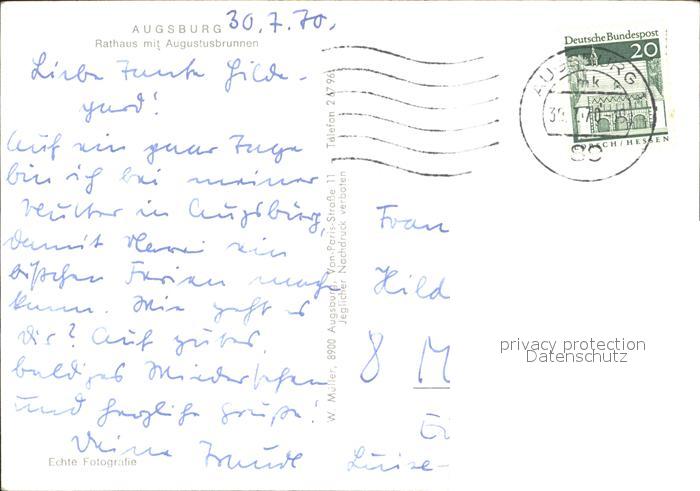 AUGSBURG
Rathaus mit Augustusbrunnen
30.7.70.
Liebe Tante Hilde-
gard!
Auf ein paar Tage
bin ich bei meiner
Mutter in Augsburg,
damit ein
bißchen Ferien mach
kann. Wie geht es
dir? Auf gutes,
baldiges Wiedersehen
und herzliche Grüße!
Deine
Luise-
Echte Fotografie
W. Müller, 8900 Augsburg, Von-Paris-Straße 11 Telefon 26796
Jeglicher Nachdruck verboten
Deutsche Bundespost
20
LORSCH/HESSEN
AUGSBURG
Frau
Hild
8 M
privacy protection
Datenschutz